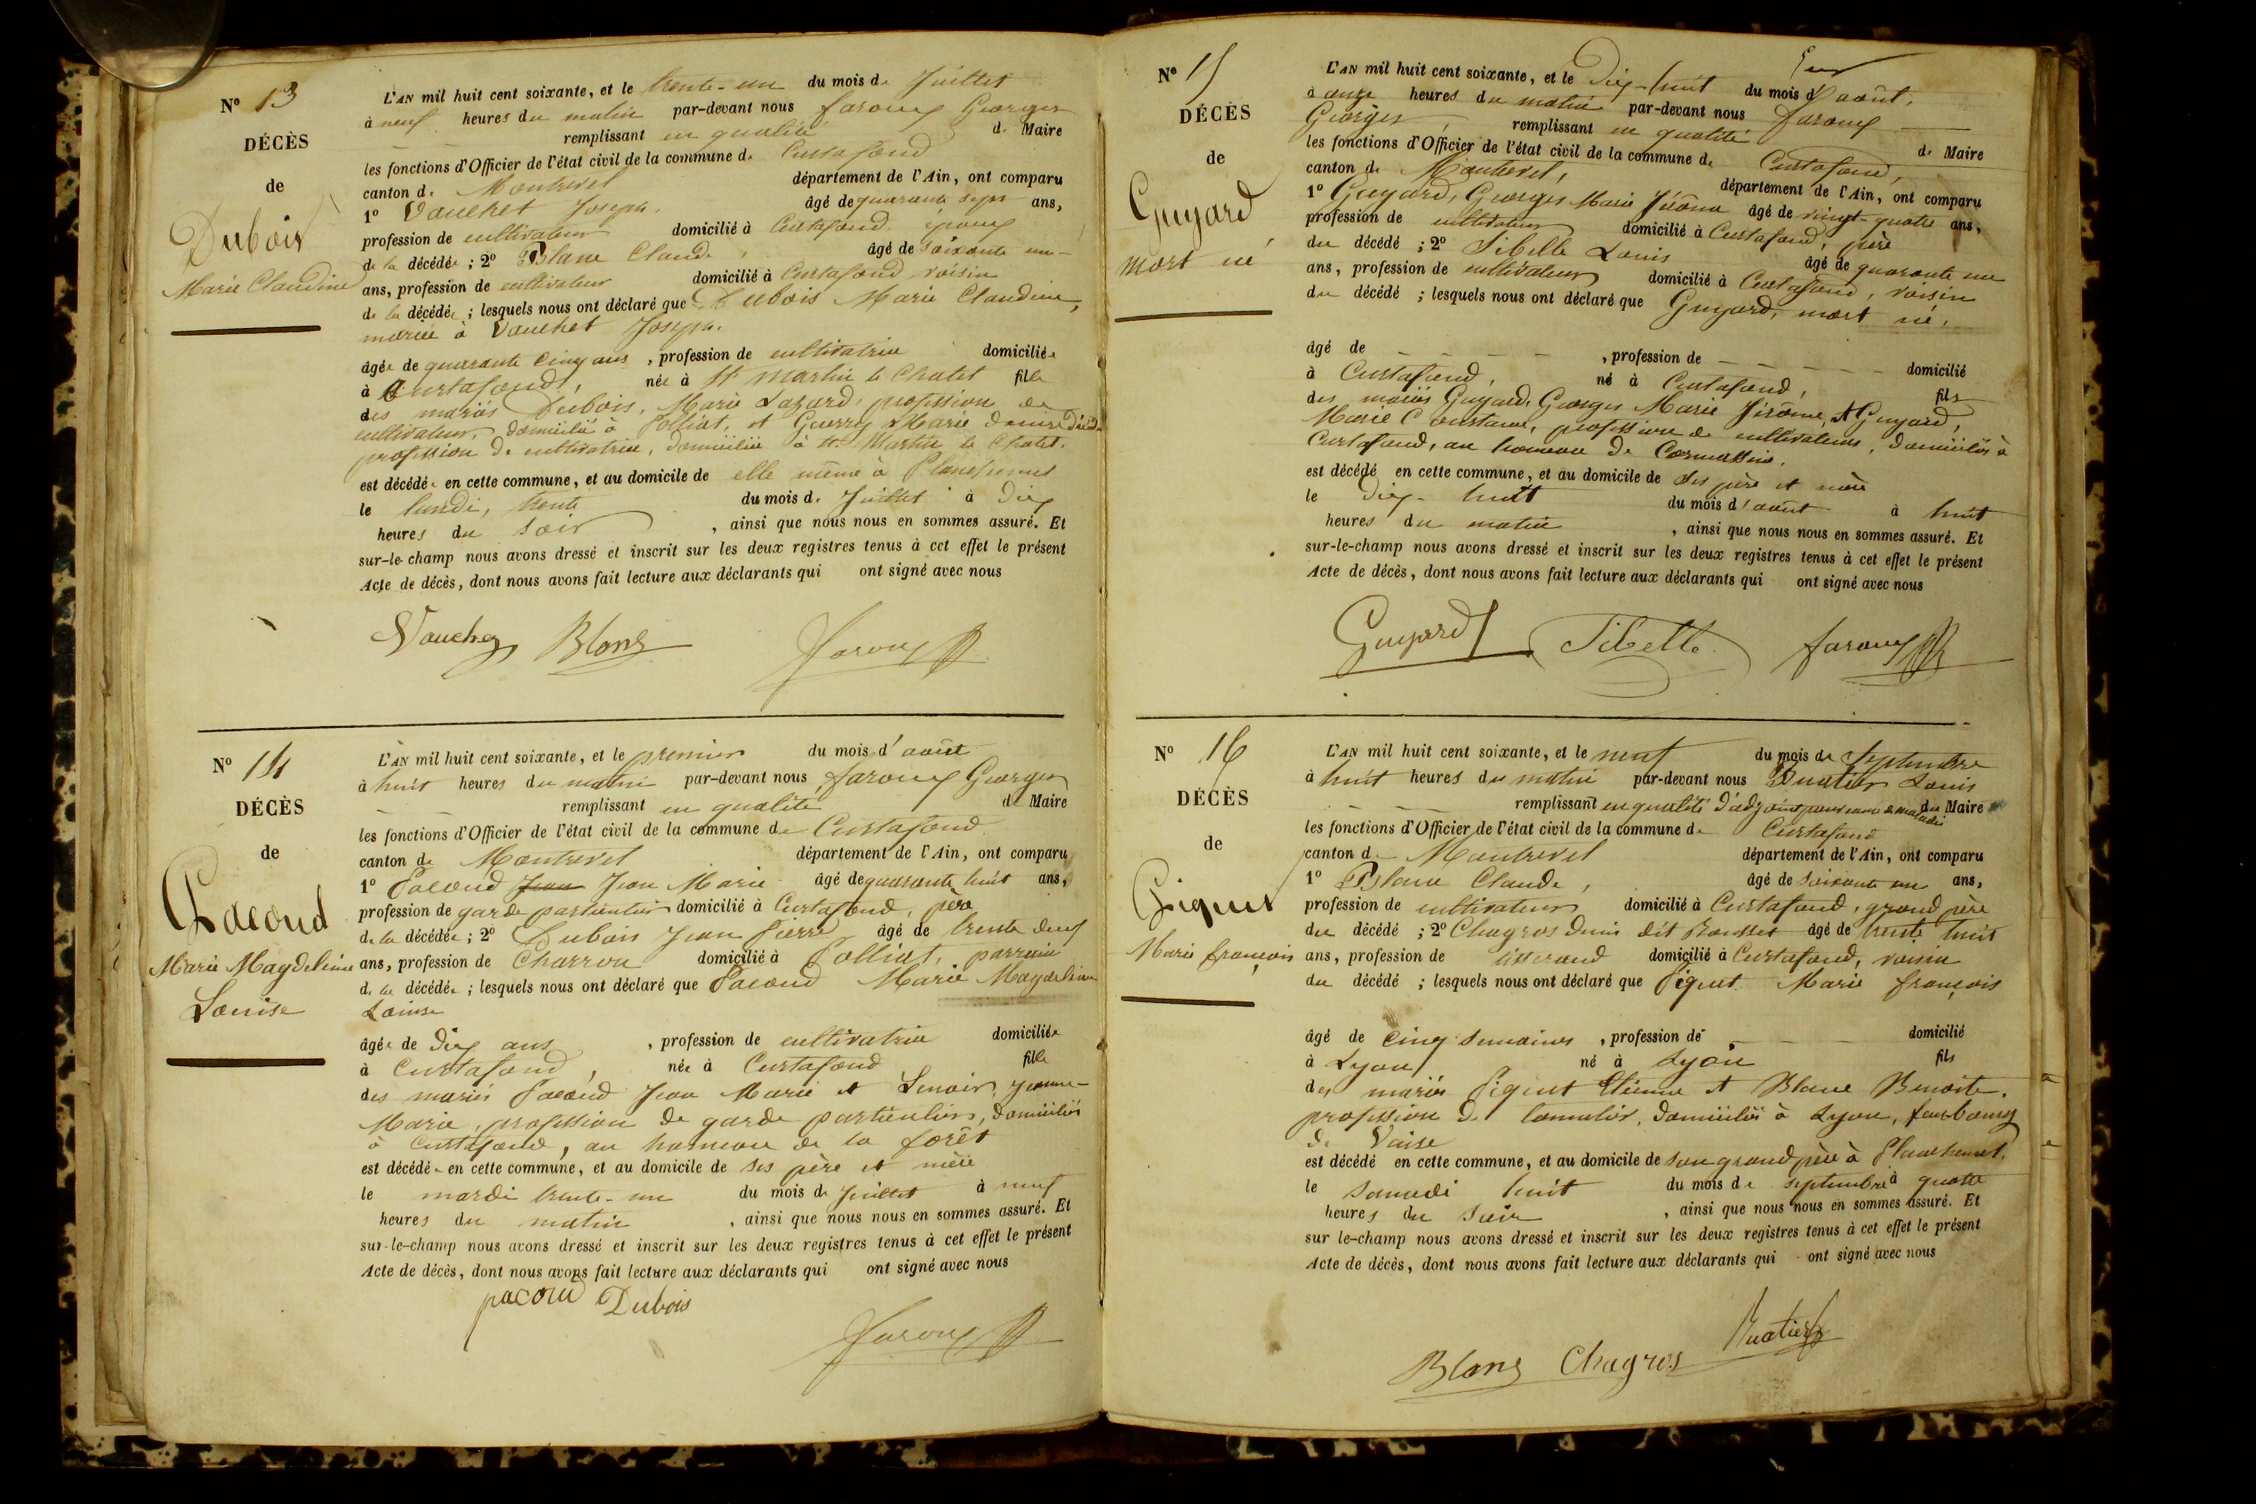 N° 13
DÉCÈS
de
Dubois
Marie Claudine
L'AN mil huit cent soixante, et le trente-un du mois de Juillet
à neuf heures du matin par-devant nous Faroux Georges
remplissant en qualité de Maire
les fonctions d'Officier de l'état civil de la commune de Curtafond
canton de Montrevel département de l'Ain, ont comparu
1° Vauchet Joseph. âgé de quarante sept ans,
profession de cultivateur domicilié à Curtafond époux
de la décédée ; 2° Blanc Claude, âgé de soixante un
ans, profession de cultivateur domicilié à Curtafond voisin
de la décédée ; lesquels nous ont déclaré que Dubois Marie Claudine,
mariée à Vauchet Joseph.
âgée de quarante cinq ans, profession de cultivatrice domiciliée
à Curtafond, née à St Martin le Chatel fille
des mariés Dubois, Marie Lazard, profession de
cultivateur, domicilié à Polliat, et Guerry Marie Denise décédée
profession de cultivatrice, domiciliée à St Martin le Chatel.
est décédée en cette commune, et au domicile de elle même à Planchemel
le lundi, trente du mois de Juillet à dix
heures du soir, ainsi que nous nous en sommes assuré. Et
sur-le-champ nous avons dressé et inscrit sur les deux registres tenus à cet effet le présent
Acte de décès, dont nous avons fait lecture aux déclarants qui ont signé avec nous
Vauchez Blanc Faroux
N° 14
DÉCÈS
de
Pacoud
Marie Magdeleine
Louise
L'AN mil huit cent soixante, et le premier du mois d'août
à huit heures du matin par-devant nous, Faroux Georges
remplissant en qualité de Maire
les fonctions d'Officier de l'état civil de la commune de Curtafond
canton de Montrevel département de l'Ain, ont comparu
1° Pacoud Jean Jean Marie âgé de quarante huit ans,
profession de garde particulier domicilié à Curtafond, père
de la décédée ; 2° Dubois Jean Pierre âgé de trente deux
ans, profession de Charron domicilié à Polliat, parrain
de la décédée ; lesquels nous ont déclaré que Pacoud Marie Magdeleine
Louise
âgée de dix ans, profession de cultivatrice domiciliée
à Curtafond, née à Curtafond fille
des mariés Pacoud Jean Marie et Lenoir, Jeanne-
Marie, profession de garde particulier, domiciliés
à Curtafond, au hameau de la forêt
est décédée en cette commune, et au domicile de ses père et mère
le mardi trente-un du mois de Juillet à neuf
heures du matin, ainsi que nous nous en sommes assuré. Et
sur-le-champ nous avons dressé et inscrit sur les deux registres tenus à cet effet le présent
Acte de décès, dont nous avons fait lecture aux déclarants qui ont signé avec nous
pacoud Dubois
Faroux
N° 15
DÉCÈS
de
Guyard
mort né
L'AN mil huit cent soixante, et le Dix-huit du mois d'août,
à onze heures du matin par-devant nous Faroux
Georges, remplissant en qualité de Maire
les fonctions d'Officier de l'état civil de la commune de Curtafond,
canton de Montrevel, département de l'Ain, ont comparu
1° Guyard, Georges Marie Jérôme âgé de vingt-quatre ans,
profession de cultivateur domicilié à Curtafond, père
du décédé ; 2° Tibelle Louis âgé de quarante un
ans, profession de cultivateur domicilié à Curtafond, voisin
du décédé ; lesquels nous ont déclaré que Guyard, mort né,
âgé de , profession de domicilié
à Curtafond, né à Curtafond, fils
des mariés Guyard, Georges Marie Jérôme, et Guyard,
Marie Constance, profession de cultivateurs, domiciliés à
Curtafond, au hameau de Cormassin.
est décédé en cette commune, et au domicile de ses père et mère
le dix-huit du mois d'août à huit
heures du matin, ainsi que nous nous en sommes assuré. Et
sur-le-champ nous avons dressé et inscrit sur les deux registres tenus à cet effet le présent
Acte de décès, dont nous avons fait lecture aux déclarants qui ont signé avec nous
Guyard Tibelle Faroux
N° 16
DÉCÈS
de
Piquet
Marie françois
L'AN mil huit cent soixante, et le neuf du mois de Septembre
à huit heures du matin par-devant nous Buatier Louis
remplissant en qualité d'adjoint pour cause de maladie du Maire
les fonctions d'Officier de l'état civil de la commune de Curtafond
canton de Montrevel département de l'Ain, ont comparu
1° Blanc Claude, âgé de soixante un ans,
profession de cultivateur domicilié à Curtafond, grand père
du décédé ; 2° Chagros Denis dit Rousset âgé de trente huit
ans, profession de tisserand domicilié à Curtafond, voisin
du décédé ; lesquels nous ont déclaré que Piquet Marie françois
âgé de cinq semaines, profession de domicilié
à Lyon né à Lyon fils
des mariés Piquet Etienne et Blanc Benoite.
profession de domiciliés à Lyon, faubourg
de Vaise
est décédé en cette commune, et au domicile de son grand père à Planchemel,
le samedi huit du mois de septembre à quatre
heures du soir, ainsi que nous nous en sommes assuré. Et
sur le-champ nous avons dressé et inscrit sur les deux registres tenus à cet effet le présent
Acte de décès, dont nous avons fait lecture aux déclarants qui ont signé avec nous
Buatier
Blanc Chagros